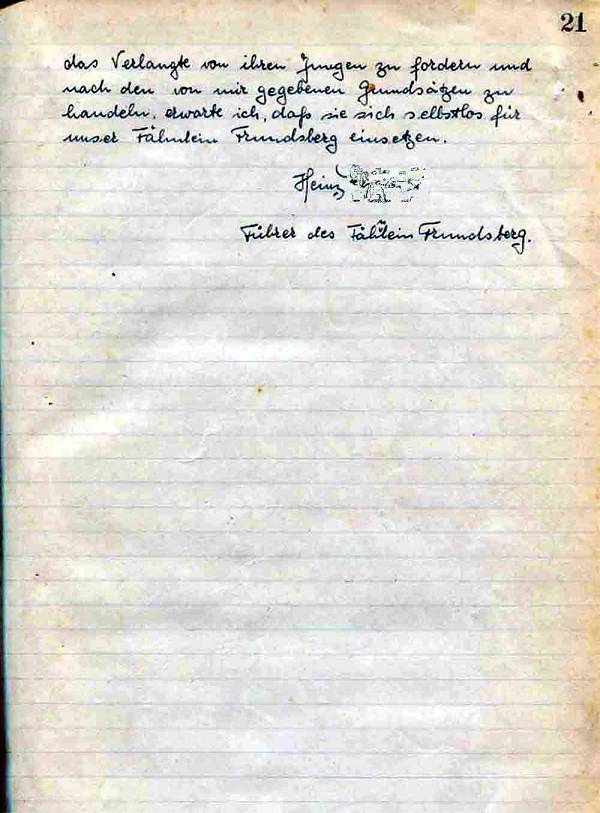 21
das Verlangte von ihren Jungen zu fordern und
nach den von mir gegebenen Grundsätzen zu
handeln, erwarte ich, daß sie sich selbstlos für
unser Fähnlein Frundsberg einsetzen.
Heinz
Führer des Fähnlein Frundsberg.